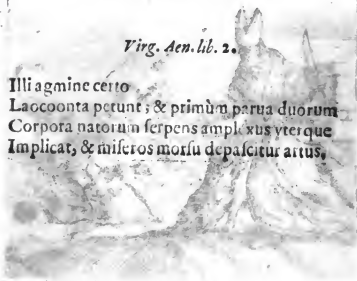 Virg. Aen. lib. 2.
Illi agmine certo
Laocoonta petunt; & primùm parua duorum
Corpora natorum ſerpens amplexus vterque
Implicat, & miſeros morſu depaſcitur artus.